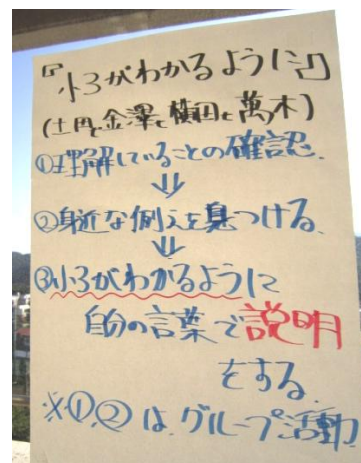 『小3がわかるように』
(土円と金澤と横田と萬木)
①理解していることの確認.
⇓
②身近な例えを見つける.
⇓
③小3がわかるように
自分の言葉で説明
をする.
※①,②は、グループ活動